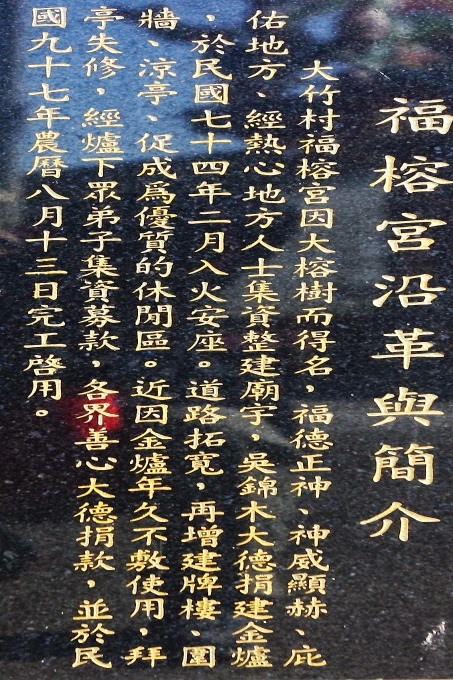 福榕宮沿革與簡介
大竹村福榕宮因大榕樹而得名，福德正神、神威顯赫、庇
佑地方、經熱心地方人士集資整建廟宇，吳錦木大德捐建金爐
，於民國七十四年二月入火安座。道路拓寬，再增建牌樓、圍
牆、涼亭、促成為優質的休閒區。近因金爐年久不敷使用，拜
亭失修，經爐下眾弟子集資募款，各界善心大德捐款，並於民
國九十七年農曆八月十三日完工啓用。